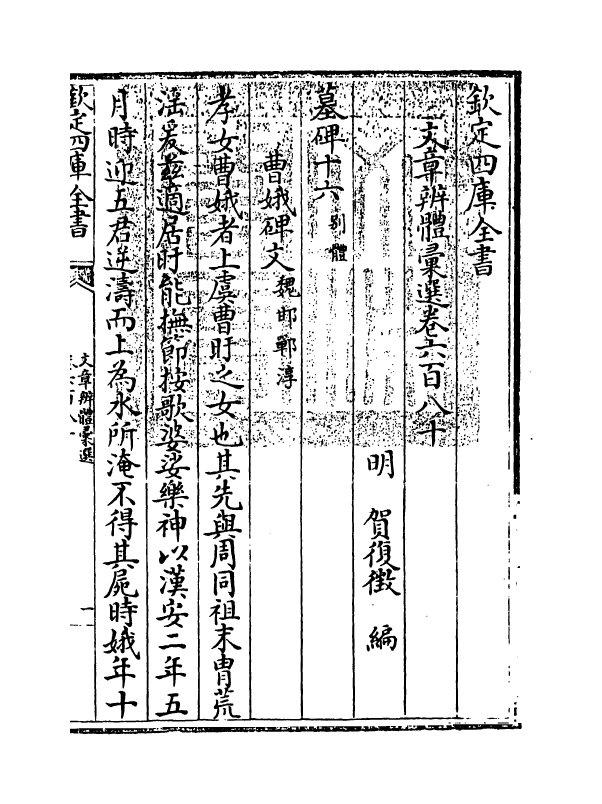 欽定四庫全書
文章辨體彙選卷六百八十
明 賀復徵 編
墓碑十六 別體
曹娥碑文 魏邯鄲淳
孝女曹娥者上虞曹盱之女也其先與周同祖末胄荒
淫爰兹適居盱能撫節按歌婆娑樂神以漢安二年五
月時迎五君逆濤而上為水所淹不得其屍時娥年十
欽定四庫全書
文章辨體彙選
一